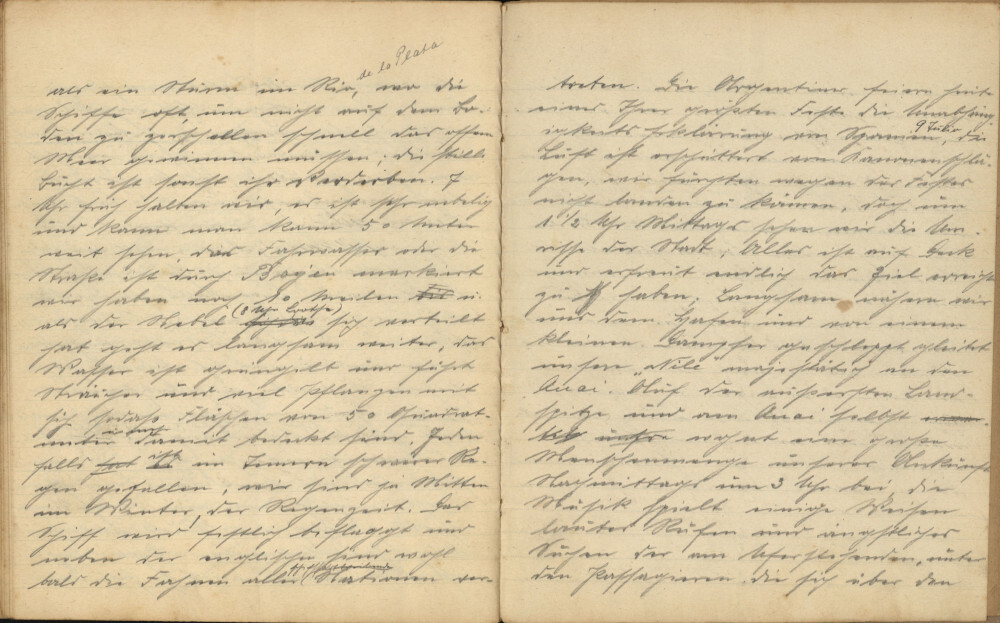 de la Plata
als ein Sturm im Rio, wo die
Schiffe oft, um nicht auf dem Bo-
den zu zerschellen schnell das offene
Meer gewinnen müssen; die stille
Bucht ist sonst ihr Verderben. 7
Uhr früh halten wir, es ist sehr nebelig
und kann man kaum 50 Meter
weit sehen, das Fahrwasser oder die
Straße ist durch Bogen markiert
wir haben noch 10 Meilen u.
(8 Uhr Lootse)
als der Nebel sich verteilt
hat geht es langsam weiter, das
Wasser ist grüngelb und führt
Sträucher und viel Pflanzen mit
sich sodass Flächen von 50 Quadrat-
meter damit bedeckt sind. Jeden
falls ist im Innern schwerer Re-
gen gefallen, wir sind ja mitten
im Winter, der Regenzeit. Das
Schiff wird festlich beflaggt und
neben der englischen sind wohl
bald die Fahnen aller Nationen ver-
treten. Die Argentiner feiern heute
eines Ihrer größten Feste die Unabhäng-
igkeits Erklärung von Spanien, die
9 Julio
Luft ist erschüttert von Kanonenschlä-
gen, wir fürchten wegen des Festes
nicht landen zu können, doch um
1 1/2 Uhr Mittags sehen wir die Um-
risse der Stadt; Alles ist auf Deck
und erfreut endlich das Ziel erreicht
zu haben; Langsam nähern wir
uns dem Hafen und von einem
kleinen Dampfer geschleppt gleitet
unsere „Nile" majestätisch an den
Quai. Auf der äussersten Land-
spitze und am Quai selbst
wartet eine große
Menschenmenge unserer Ankunft
Nachmittags um 3 Uhr bei die
Musik spielt einige Weisen
lautes Rufen und ängstliches
Suchen der am Uferstehenden, unter
den Passagieren die sich über den